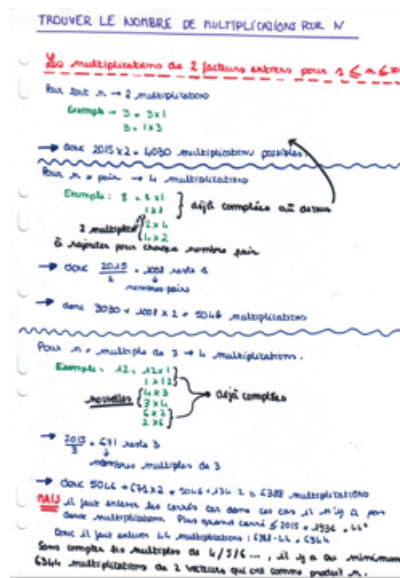 TROUVER LE NOMBRE DE MULTIPLICATIONS POUR N
Les multiplications de 2 facteurs entiers pour 1 ≤ n ≤
Pour tout n → 2 multiplications
Exemple → 3 = 3x1
3 = 1x3
→ donc 2015 x 2 = 4030 multiplications possibles
Pour n = pair → 4 multiplications
Exemple : 8 = 8x1
1x8 } déjà comptées au dessus
2 multiples { 2x4
4x2
à rajouter pour chaque nombre pair
→ donc 2015/2 = 1007 reste 1
nombres pairs
→ donc 3030 + 1007 x 2 = 5046 multiplications
Pour n = multiple de 3 → 4 multiplications.
Exemple : 12 = 12x1
1x12
nouvelles { 4x3
3x4
6x2
2x6 → déjà comptées
→ 2015/3 = 671 reste 3
nombres multiples de 3
→ donc 5046 + 671x2 = 5046 + 1342 = 6388 multiplications
MAIS il faut enlever les carrés car dans ces cas il n'y a pas
deux multiplications. Plus grand carré ≤ 2015 = 1936 = 44²
Donc il faut enlever 44 multiplications : 6388-44 = 6344
Sans compter les multiples de 4/5/6 ..., il y a au minimum
6344 multiplications de 2 facteurs qui ont comme produit n.